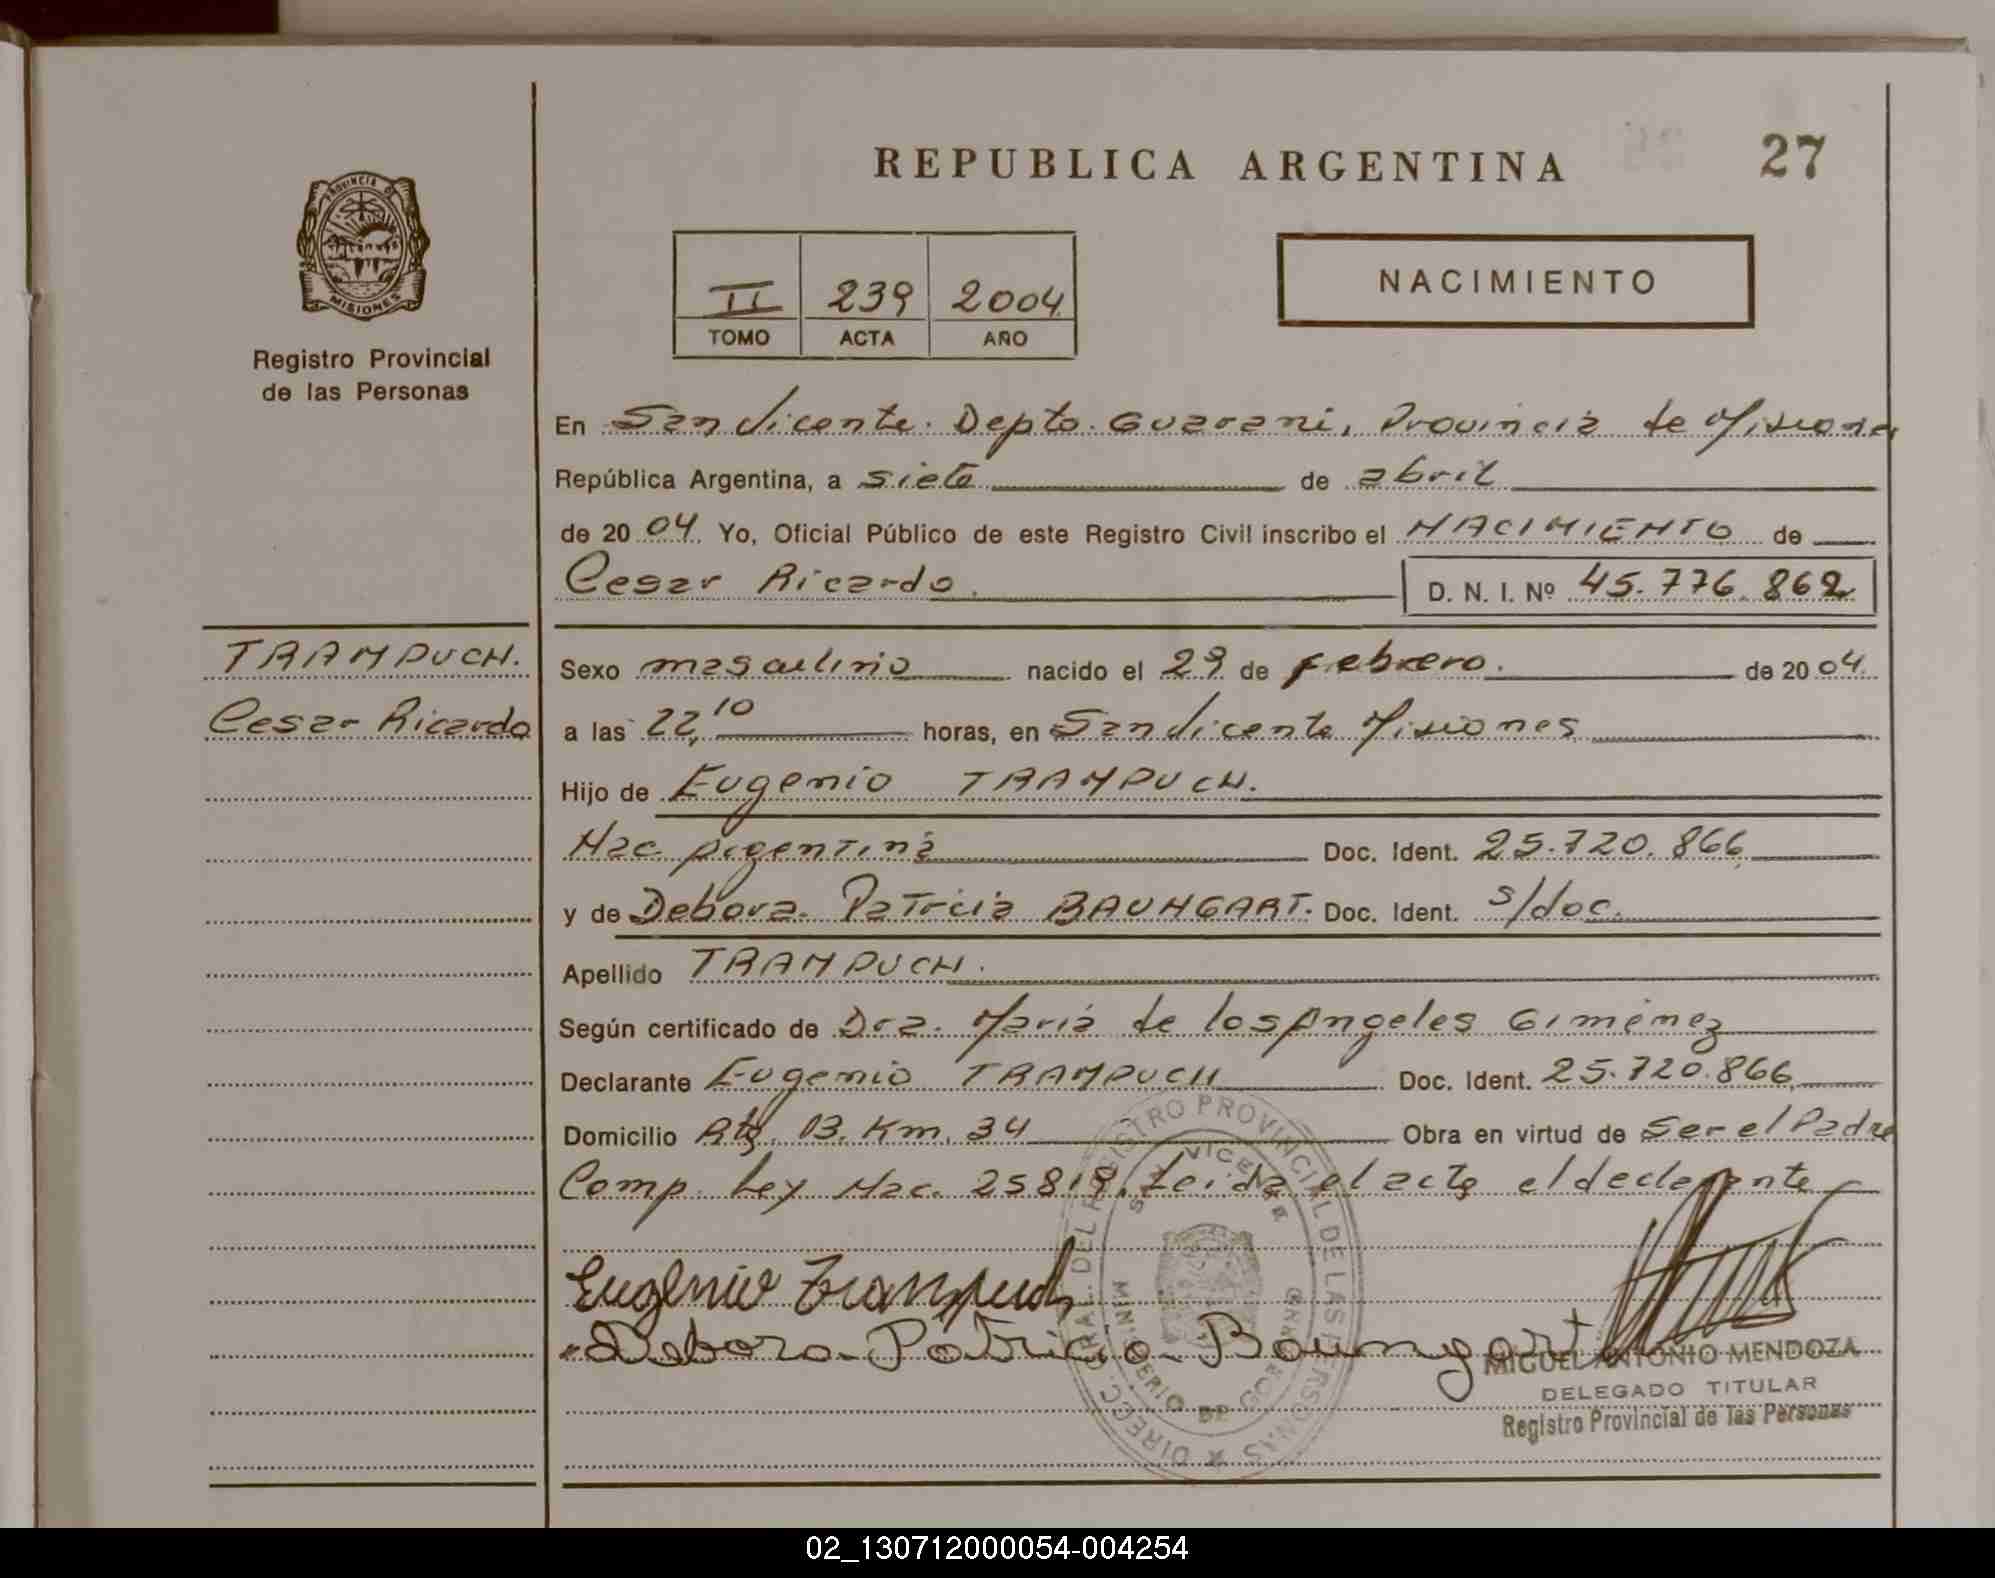 REPUBLICA ARGENTINA
27
PROVINCIA DE
MISIONES
Registro Provincial
de las Personas
II 239 2004
TOMO ACTA AÑO
NACIMIENTO
En San Vicente. Depto. Guarani, Provincia de Misiones
República Argentina, a siete de abril
de 2004. Yo, Oficial Público de este Registro Civil inscribo el NACIMIENTO de
Cesar Ricardo. D. N. I. Nº 45.776.862
TRAMPUCH.
Cesar Ricardo
Sexo masculino nacido el 29 de febrero. de 2004.
a las 22,10 horas, en San Vicente Misiones
Hijo de Eugenio TRAMPUCH.
Nac. Argentina Doc. Ident. 25.720.866
y de Debora Patricia BAUMGART. Doc. Ident. s/doc.
Apellido TRAMPUCH.
Según certificado de Dra. Maria de los Angeles Gimenez
Declarante Eugenio TRAMPUCH Doc. Ident. 25.720.866
Domicilio Rta. 13. Km. 34 Obra en virtud de Ser el Padre
Comp. Ley Nac. 25819. Leida el acta el declarante
Eugenio Trampuch
Debora Patricia Baumgart
DIRECC. GRAL. DEL REGISTRO PROVINCIAL DE LAS PERSONAS
SAN VICENTE
MINISTERIO DE GOBIERNO
MIGUEL ANTONIO MENDOZA
DELEGADO TITULAR
Registro Provincial de las Personas
02_130712000054-004254